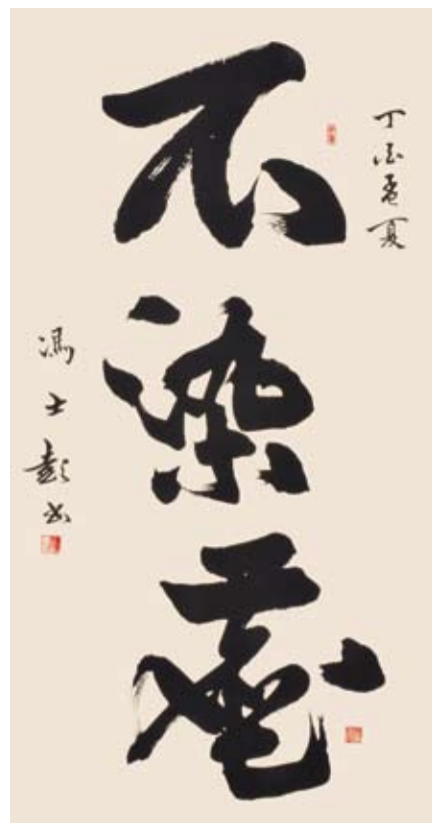 丁酉孟夏
不染
馮士彭书